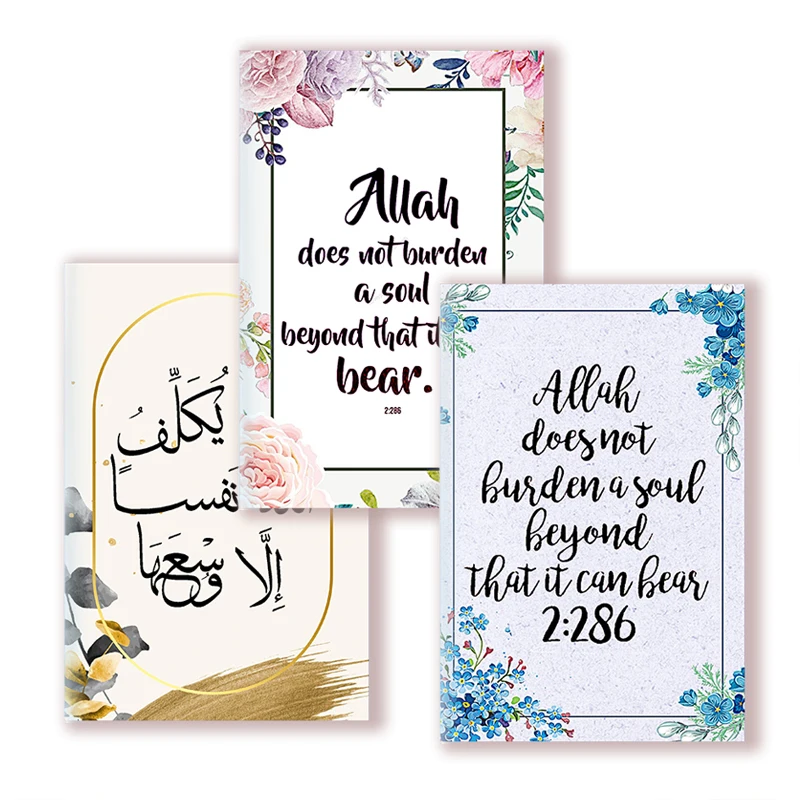 Allah
does not burden
a soul
beyond that it
bear.
2:286
يُكَلِّفُ
نَفساً
إِلَّا وُسْعَهَا
Allah
does not
burden a soul
beyond
that it can bear
2:286